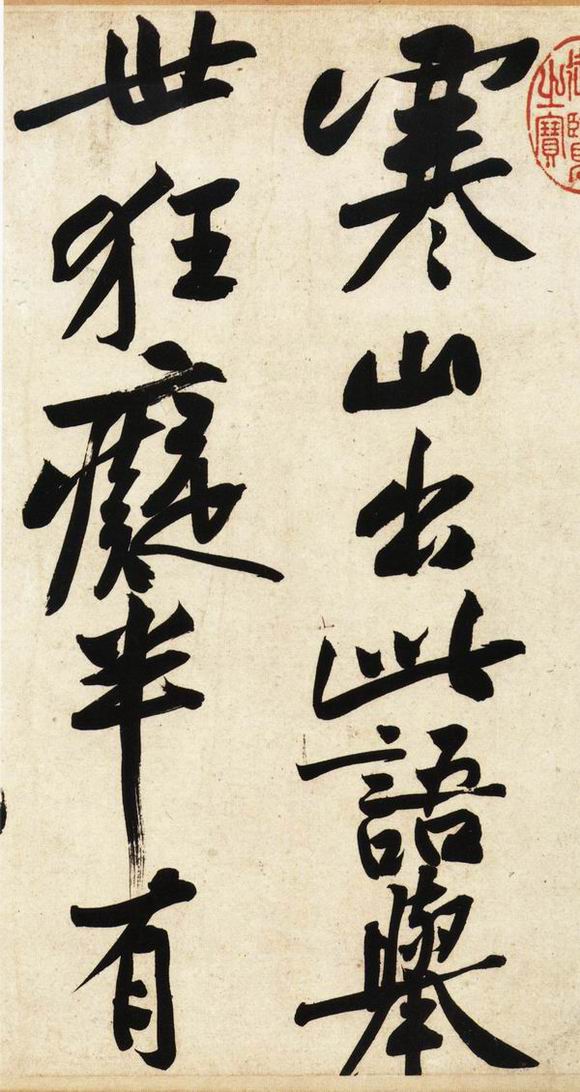 寒山出此語舉
世狂癡半有